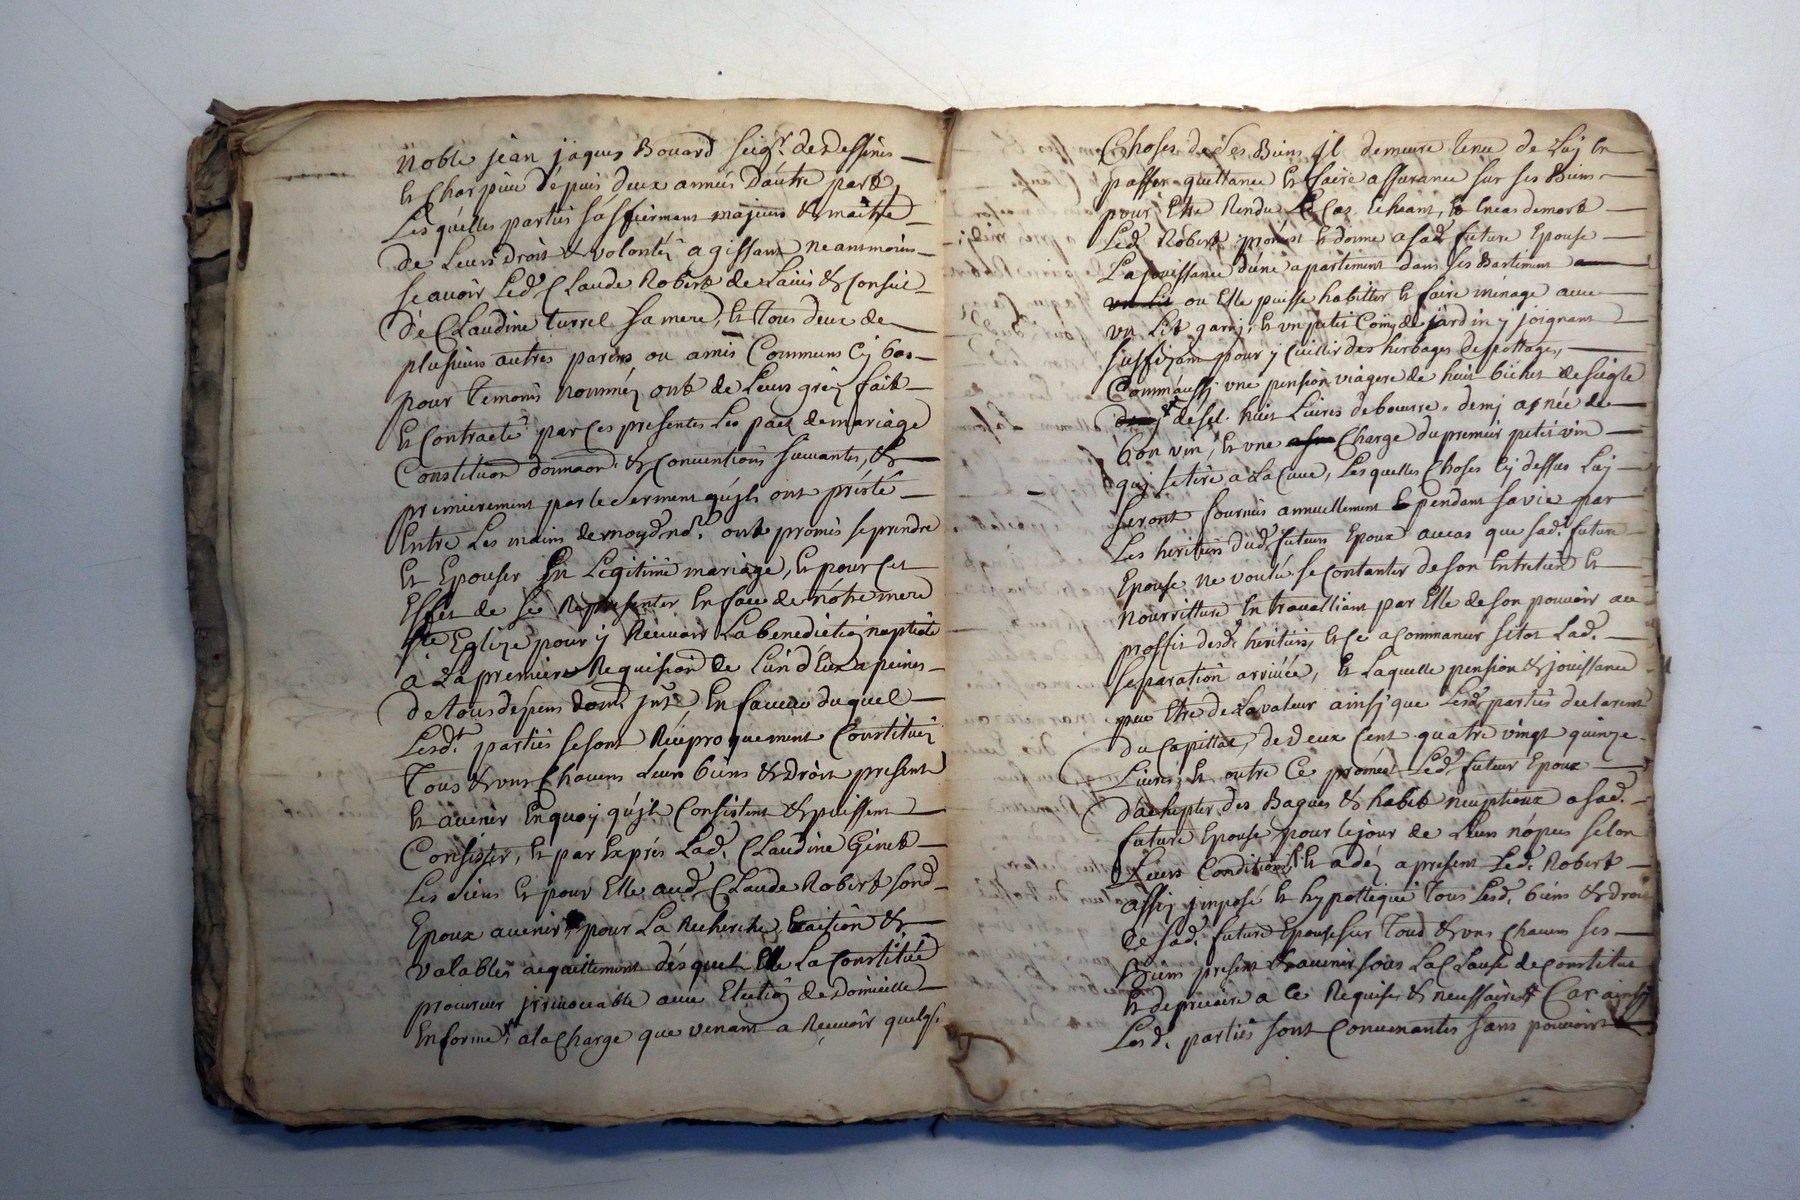 Noble jean jaques Bouard seigr. de Dessines
et Charpiüe dépuis deux années dáutre part,
Les quélles partiés sáffiermant majeurs & maitre
de Leurs droit & volontés agissant neantmoins
scauoir Led. Claude Robert de Láuis & Conseil
dé Claudine turrel sa mere, et tous deux de
plusieurs autres paréns ou amis Communs Cy bas
pour temoins nommés ont de Leurs gréz fait
et Contracté par ces presentes Les pact de mariage
Constituon donnaon & Conuentions suiuantes, &
premierement par le serment qújls ont présté
Entre Les mains de moyd. nore. ont promis se prendre
et Epouser En Legitime mariage, et pour Cet
Effet de se Représenter En face de nótre mere
Ste Eglize pour y Receuoir La benediction nuptiale
á La premiere Requision de Lún d'Eux a peines
de tous dépens dom. jnt. En faueur du quel
Lesdt. partiés se sont Réciproquement Constitués
Tous & vns Chacuns Leurs biens & droit present
et auenir En quoy qújls Consistent & puissent
Consister, et par Exprés Lad. Claudine Ginet
Les siens et pour Elle aud. Claude Robert sond.
Epoux auenir, pour La Recherche Exaction &
valables acquittement désquels Elle La Constitué
procureur jrreuocable auec Election de Domicille
En forme, a la Charge que venant a Receuoir quelqs.
Choses de ses Biens jl demeure tenu de Luj En
passer quittance et faire assurance sur ses Biens
pour Etre Rendu Le Cas Echeant, & En cas de mort
Led. Robert promet et donne a sad. future Epouse
La jouissance dúne apartement dans ses Bastiment
ou Elle puisse habitter et faire menage auec
vn Lit garnj, et vn petit Coing de jardin y joignant
suffizant pour y Cuillir des herbages de pottage,
Comme aussj vne pension viagere de huit bichet de seigle
de sel huit Liures de beurre, demj asnée de
bon vin, et vne Charge du premier petit vin
quj se tire a La Cuue, Les quelles Choses Cy dessus Luj
seront fournies annuellement & pendant sa vie par
Les heritiers dud. futeur Epoux aucas que sad. future
Epouse ne voulú se Contanter de son Entretien et
nourritture En trauaillant par Elle de son pouuoir au
proffit desd. heritiers, et Ce a Commancer sitot Lad.
separation arriuée, et Laquelle pension & jouissance
peu Etre de La valeur ainsj que Lesd. partiés declarent
du Capittal, de deux Cent quatre vingt quinze
Liures, et outre Ce promet Led. futeur Epoux
d'achepter des Bagues & habit neuptiaux a sad.
future Epouse pour le jour de Leurs nópces selon
Leurs Conditions, et a déz a present Led. Robert
assis jmposé et hypottequé tous Lesd. biens & droit
de sad. future Epouse sur Tous & vns Chacuns ses
Biens present & auenir sous La Clause de Constitut
et de precaire a Ce Requises & necessaires Car ainsj
Lesd. partiés sont Conuenantes sans pouuoir